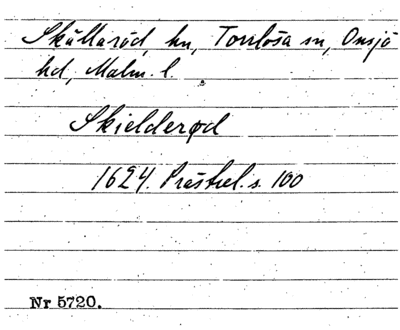 Skällaröd, hn, Torrlösa sn, Onsjö
hd, Malm. l.
Skielderød
1624. Prästrel. s. 100
Nr 5720.